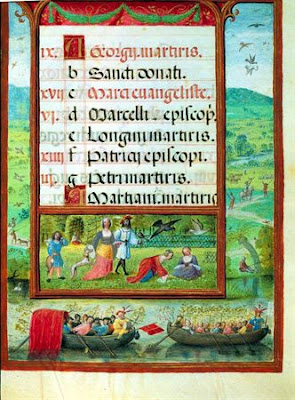 ix. A Georgij martiris.
b Sancti donati.
xvii c Marci euangeliste.
vi. d Marcelli episcop.
e Longini martiris.
xiiii f Patricij episcopi.
iii g Petri martiris.
A Martiani martiris